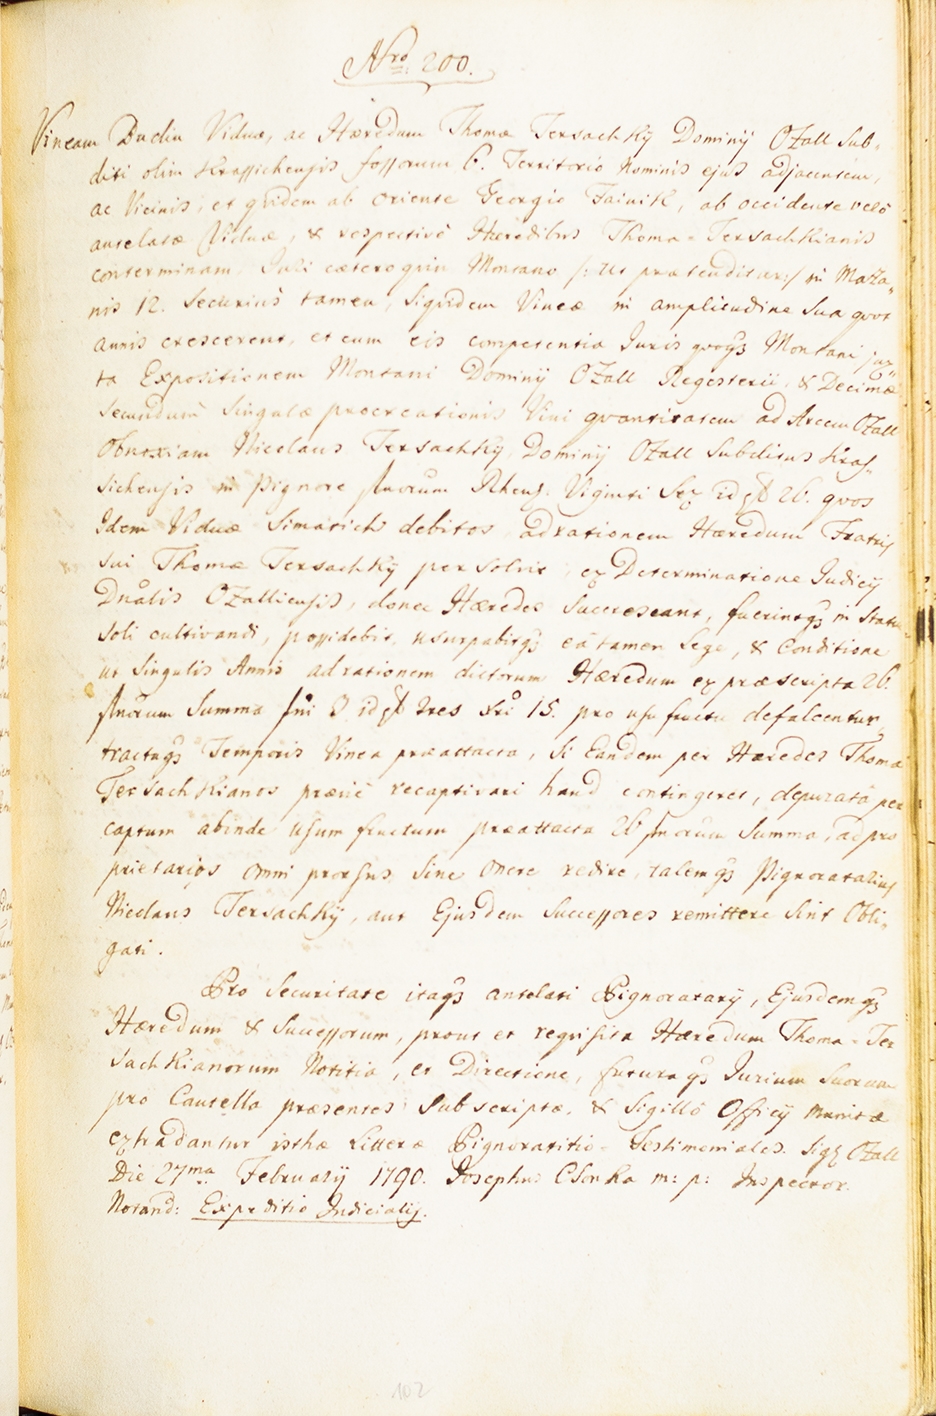 Nro 200.
Vineam Budin Viduæ, ac Hæredum Thomæ Tersachky Dominÿ Ozall Sub-
diti olim Krassichensis fossorum 6. Territorio Nominis ejus adjacentem,
ac Vicinis, et quidem ab oriente Georgio Fainik, ab occidente verò
antelatæ Viduæ, & respectivè Hæredibus Thoma-Tersachkianis
conterminam. Juri cæteroquin Montano /: ut prætenditur :/ in Maza-
nis 12. Securius tamen, siquidem Vineæ in amplitudine Sua quot
annis crescerent, et cum eis competentia Juris quoqȝ Montani jux-
ta Expositionem Montani Dominÿ Ozall Regesterii, & Decimæ
secundum singulæ procreationis Vini quantitatem ad Arcem Ozall
Obnoxiam Nicolaus Tersachky Dominÿ Ozall Subditus Kras-
sichensis in Pignore fnorum Rhens. Viginti Sex id est 26. quos
Idem Viduæ Simatich debitos, ad rationem Hæredum Fratris
sui Thomæ Tersachky persolvit, ex Determinatione Judicÿ
Dnalis Ozalliensis, donec Hæredes Succrescant, fuerintqȝ in statu
soli cultivandi, possidebit, usurpabitqȝ eâ tamen Lege, & Conditione
ut Singulis Annis ad rationem dictorum Hæredum ex præscripta 26.
fnorum Summa fni 3 id est tres xri 15. pro usu fructu defalcentur,
tractuqȝ Temporis Vinea præattacta, si Eandem per Hæredes Thoma
Tersachkianos præviè recaptivari haud contingeret, depuratô per
captum abinde Usum fructum præattacta 26 fnorum Summa, ad pro
prietarios omni prorsus sine Onere redire, talemqȝ Pignoratalius
Nicolaus Tersachkÿ, aut Ejusdem Successores remittere sint Obli-
gati.
Pro Securitate itaqȝ antelati Pignoratarÿ, Ejusdemqȝ
Hæredum & Successorum, prout et requisita Hæredum Thoma-Ter
sachkianorum Notitia, et Directione, futuraqȝ Jurium Suorum
pro Cautella præsentes Subscriptæ, & Sigillô Officÿ munitæ
extradantur isthæ Litteræ Pignoratitio-Testimoniales. Sigȝ Ozall
Die 27ma Februarÿ 1790. Josephus Csonka m: p: Inspector.
Notand: Expeditio Judicialis.
102